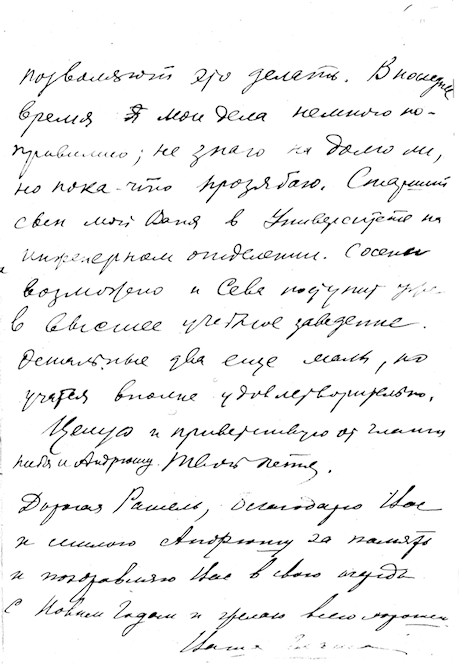 позволяют это делать. В последнее
время мои дела немного по-
правились; не знаю на долго ли,
но пока-что прозябаю. Старший
сын мой Ваня в Университете на
инженерном отделении. С осени
возможно и Сева поступит
в Высшее учебное заведение.
Остальные два еще малы, но
учатся вполне удовлетворительно.
Целую и приветствую от
тебя и Андрюшу. Твой Петя.
Дорогая Рашель, благодарю Вас
и милого Андрюшу за память
и поздравляю Вас в свою очередь
с Новым Годом и желаю всего хорошего
Ваша